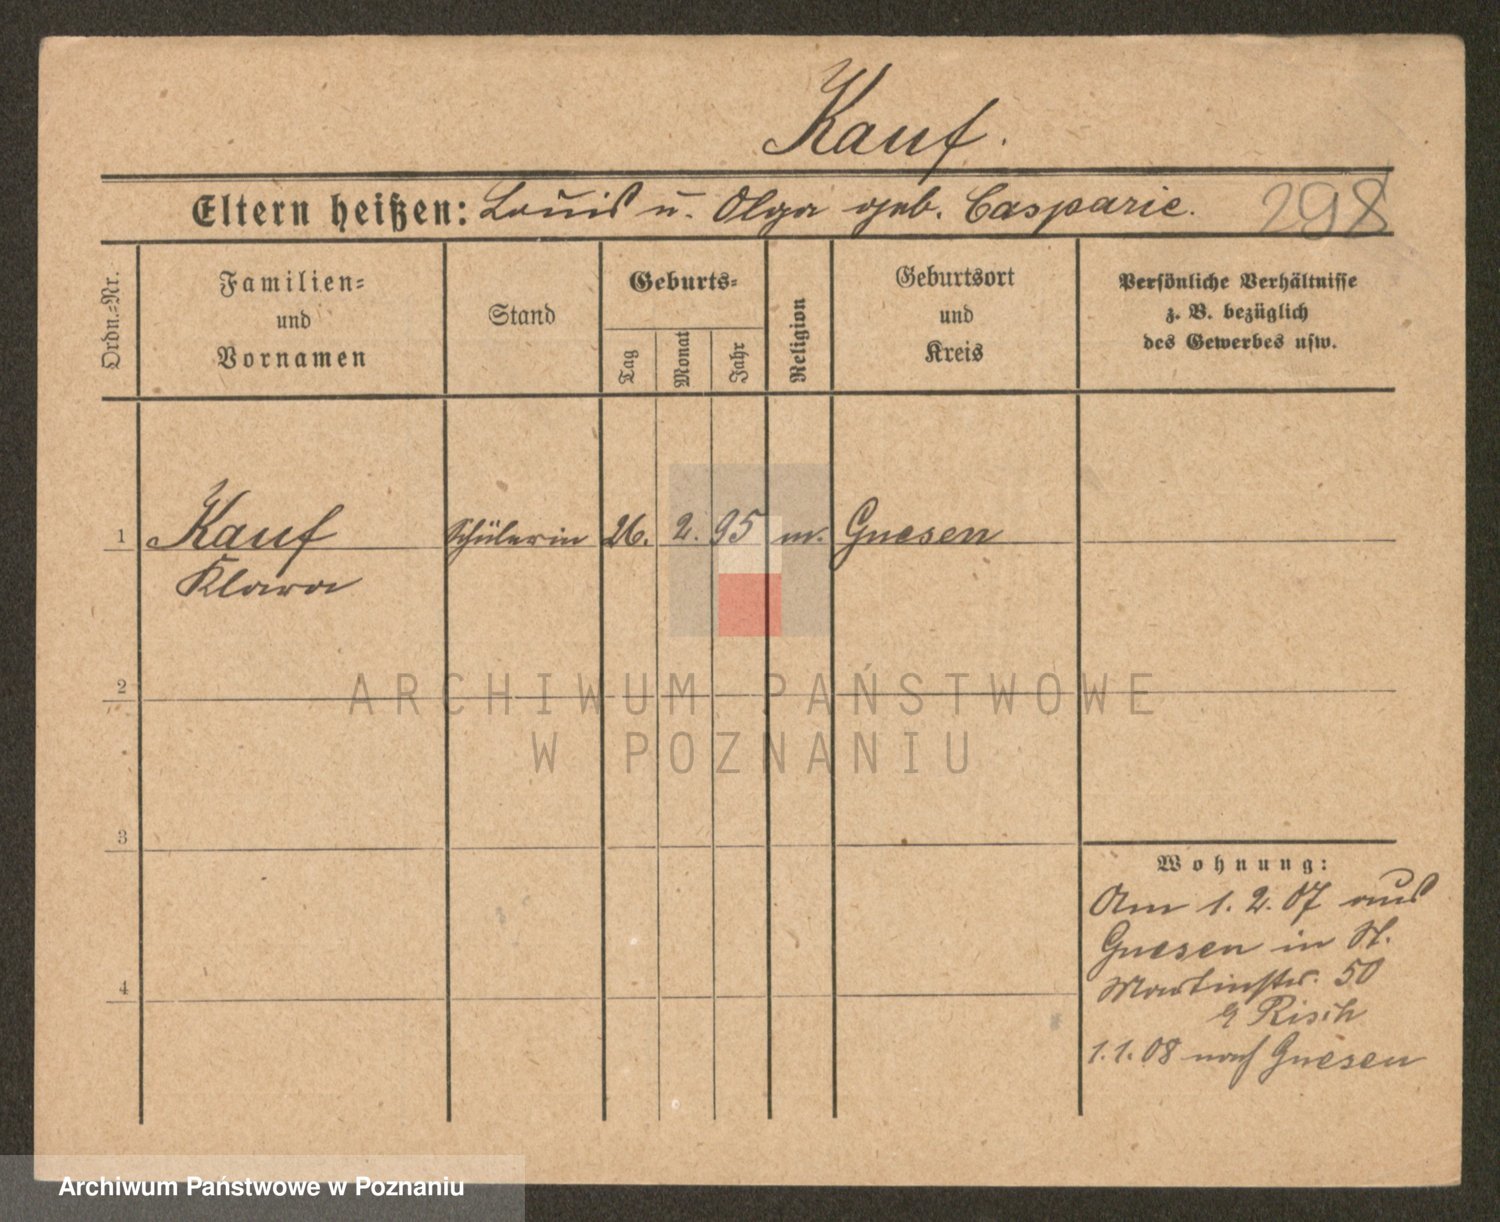 Kauf.
Eltern heißen: Louis u. Olga geb. Casparie. 298
Ordn.=Nr.
Familien=
und
Vornamen
Stand
Geburts=
Tag
Monat
Jahr
Religion
Geburtsort
und
Kreis
Persönliche Verhältnisse
z. B. bezüglich
des Gewerbes usw.
1 Kauf Schülerin 26. 2. 95 m. Gnesen
Klara
2
ARCHIWUM PAŃSTWOWE
W POZNANIU
3
Wohnung:
Am 1. 2. 07 aus
Gnesen in St.
4
Martinstr. 50
Risch
1. 1. 08 nach Gnesen
Archiwum Państwowe w Poznaniu